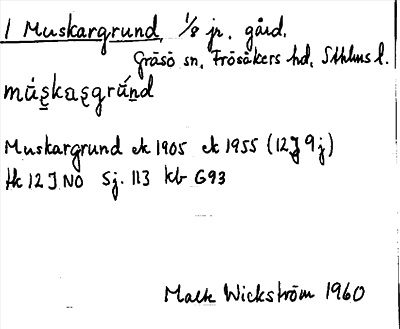 1 Muskargrund, 1/8 jr. gård.
Gräsö sn, Frösåkers hd, Sthlms l.
Muskargrund ek 1905 ek 1955 (12J 9j)
tk 12 J NO Sj. 113 kb G93
Wickström 1960